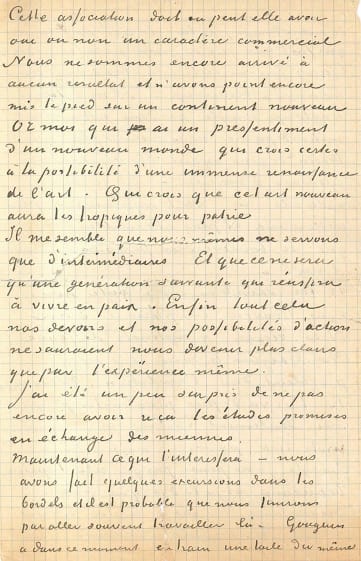 Cette association doit ou peut elle avoir
oui ou non un caractère commercial
Nous ne sommes encore arrivé à
aucun resultat et n'avons point encore
mis le pied sur un continent nouveau
Or moi qui ai un pressentiment
d'un nouveau monde qui crois certes
à la possibilité d'une immense renaissance
de l'art. Qui crois que cet art nouveau
aura les tropiques pour patrie
Il me semble que nous mêmes ne servons
que d'intermédiaires Et que ce ne sera
qu'une génération suivante qui réussira
à vivre en paix. Enfin tout cela
nos devoirs et nos possibilités d'action
ne sauraient nous devenir plus clairs
que par l'expérience même.
J'ai été un peu surpris de ne pas
encore avoir reçu les études promises
en échange des miennes.
Maintenant ce qui t'interessera – nous
avons fait quelques excursions dans les
bordels et il est probable que nous finirons
par aller souvent travailler là – Gauguin
a dans ce moment en train une toile du même